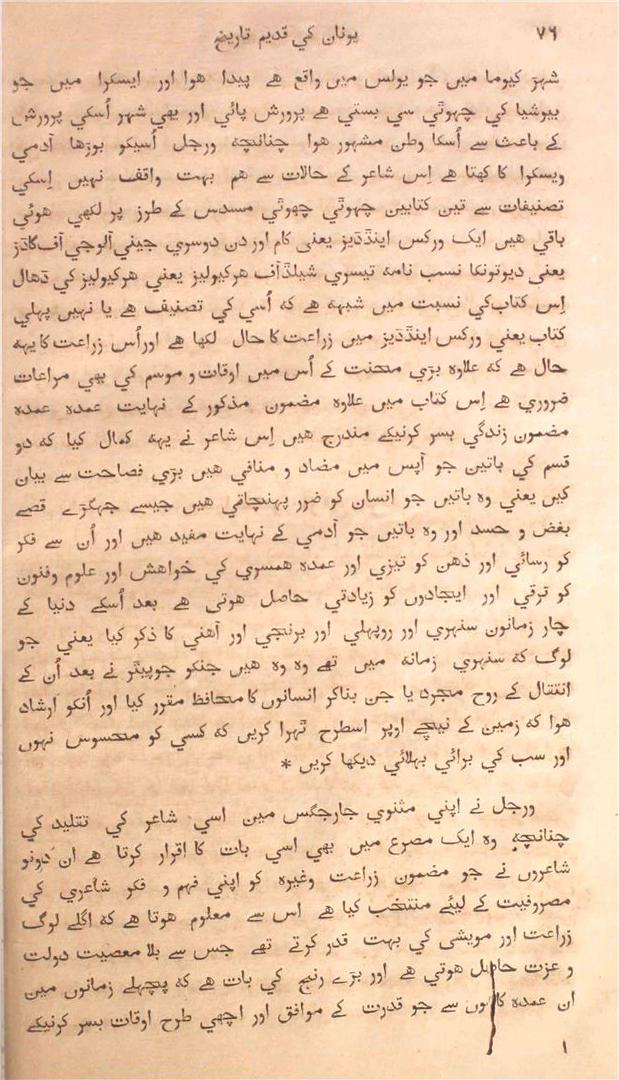 ٧٦ يونان كي قديم تاريخ
شہر كيوما ميں جو يولس ميں واقع هے پيدا هوا اور ايسكرا ميں جو
بيوشيا كي چہوٹي سي بستي هے پرورش پائي اور يهي شهر اُسكي پرورش
كے باعث سے اُسكا وطن مشہور هوا چنانچہ ورجل اُسيكو بوڑها آدمي
ويسكرا كا كهتا هے اِس شاعر كے حالات سے هم بہت واقف نہيں اِسكي
تصنيفات سے تين كتابيں چہوٹي چهوٹي مسدس كے طرز پر لكهي هوئي
باقي هيں ايک وركس اينڈڈيز يعني كام اور دن دوسري جيني آلوجي آف گاڈز
يعني ديوتونكا نسب نامہ تيسري شيلڈآف هركيوليز يعني هركيوليز كي ڈهال
اِس كتاب كي نسبت ميں شبهہ هے كه اُسي كي تصنيف هے يا نہيں پهلي
كتاب يعني وركس اينڈڈيز ميں زراعت كا حال لكها هے اور اُس زراعت كا يہہ
حال هے كه علاوہ بڑي محنت كے اُس ميں اوقات و موسم كي بهي مراعات
ضروري هے اِس كتاب ميں علاوہ مضمون مذكور كے نہايت عمدہ عمدہ
مضمون زندگي بسر كرنيكے مندرج هيں اِس شاعر نے يہہ كمال كيا كه دو
قسم كي باتيں جو آپس ميں مضاد و منافي هيں بڑي فصاحت سے بيان
كيں يعني وہ باتيں جو انسان كو ضرر پهنچاتي هيں جيسے جہگڑے قصے
بغض و حسد اور وہ باتيں جو آدمي كے نہايت مفيد هيں اور اُن سے فكر
كو رسائي اور ذهن كو تيزي اور عمدہ همسري كي خواهش اور علوم وفنون
كو ترقي اور ايجادوں كو زيادتي حاصل هوتي هے بعد اُسكے دنيا كے
چار زمانون سنهري اور روپهلي اور برنجي اور آهني كا ذكر كيا يعني جو
لوگ كه سنهري زمانه ميں تهے وہ وہ هيں جنكو جوپيٹر نے بعد اُن كے
انتقال كے روح مجرد يا جن بناكر انسانوں كا محافظ مقرر كيا اور اُنكو ارشاد
هوا كه زمين كے نيچے اوپر اسطرح ٹهرا كريں كه كسي كو محسوس نهوں
اور سب كي برائي بهلائي ديكها كريں *
ورجل نے اپني مثنوي جارجكس مين اسي شاعر كي تقليد كي
چنانچہ وہ ايک مصرع ميں بهي اسي بات كا اقرار كرتا هے ان دونو
شاعروں نے جو مضمون زراعت وغيرہ كو اپني فهم و فكر شاعري كي
مصروفيت كے ليئے منتخب كيا هے اس سے معلوم هوتا هے كه اگلے لوگ
زراعت اور مويشي كي بہت قدر كرتے تهے جس سے بلا معصيت دولت
و عزت حاصل هوتي هے اور بڑے رنج كي بات هے كه پچهلے زمانوں مين
ان عمدہ كاموں سے جو قدرت كے موافق اور اچهي طرح اوقات بسر كرنيكے
ا